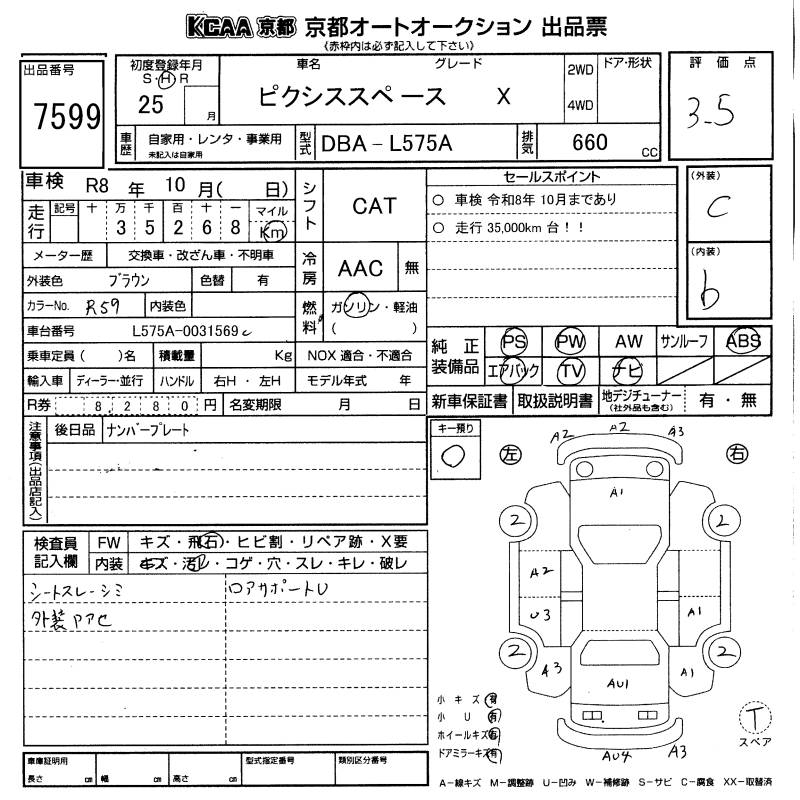 KCAA 京都 京都オートオークション 出品票
(赤枠内は必ず記入して下さい)
出品番号
7599
初度登録年月
S・H・R
25
月
車名 グレード
ピクシススペース X
2WD
4WD
ドア・形状
評価点
3.5
車歴
自家用・レンタ・事業用
未記入は自家用
型式
DBA-L575A
排気
660 CC
車検 R8 年 10 月( 日)
走行
記号 十 万 千 百 十 一 マイル
3 5 2 6 8 Km
メーター歴 交換車・改ざん車・不明車
外装色 ブラウン 色替 有
カラーNo. R59 内装色
車台番号 L575A-0031569
乗車定員( )名 積載量 Kg NOX 適合・不適合
輸入車 ディーラー・並行 ハンドル 右H・左H モデル年式 年
R券 8,280 円 名変期限 月 日
シフト
CAT
冷房
AAC 無
燃料
ガソリン・軽油
( )
セールスポイント
○ 車検 令和8年 10月まであり
○ 走行 35,000km 台!!
(外装)
C
(内装)
b
純正装備品
PS PW AW サンルーフ ABS
エアバック TV ナビ
新車保証書 取扱説明書 地デジチューナー (社外品も含む) 有・無
注意事項(出品店記入)
後日品 ナンバープレート
キー預り
○
検査員記入欄
FW キズ・飛石・ヒビ割・リペア跡・X要
内装 キズ・汚レ・コゲ・穴・スレ・キレ・破レ
シートスレ・シミ
ロアサポートU
外装アアセ
左
右
A2 A2 A3
A1
2 2
A2
U3 A1
2 2
A3 A1
AU1
AU4 A3
小キズ 有
小U 有
ホイールキズ 有
ドアミラーキズ 有
T
スペア
車庫証明用
長さ cm 幅 cm 高さ cm
型式指定番号
類別区分番号
A-線キズ M-調整跡 U-凹み W-補修跡 S-サビ C-腐食 XX-取替済